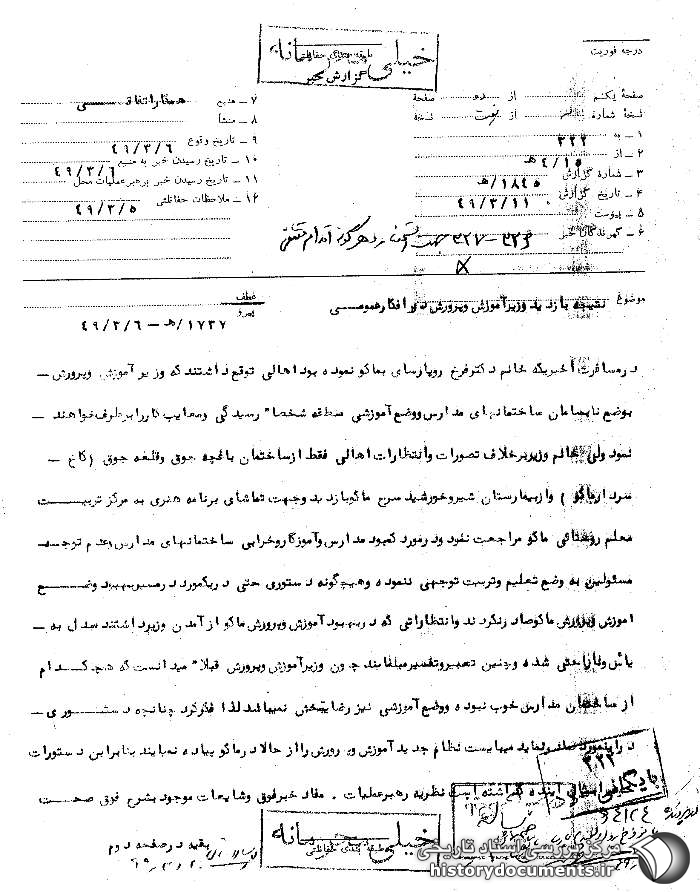 درجه فوریت
خیلی محرمانه
طبقه بندی حفاظتی
گزارش خبر
صفحهٔ یکم از دو صفحه
نسخهٔ شماره از نسخه
۱ ـ به ۳۲۲
۲ ـ از ۴/۱۵ هـ
۳ ـ شماره گزارش ۱۸۴۵/هـ
۴ ـ تاریخ گزارش ۴۹/۳/۱۱
۵ ـ پیوست
۶ ـ گیرندگان خبر
۷ ـ منبع همکار اتفاقی
۸ ـ منشأ
۹ ـ تاریخ وقوع ۴۹/۳/۶
۱۰ ـ تاریخ رسیدن خبر به منبع ۴۹/۳/۶
۱۱ ـ تاریخ رسیدن خبر به رهبر عملیات محل
۱۲ ـ ملاحظات حفاظتی ۴۹/۳/۵
موضوع نتیجه بازدید وزیر آموزش وپرورش در افکار عمومی
عطف
پیرو ۱۷۳۷/هـ ـ ۴۹/۳/۶
در مسافرت اخیریکه خانم دکتر فرخ روپارسای بماکو نموده بود اهالی توقع داشتند که وزیر آموزش وپرورش ـ
بوضع نابسامان ساختمانهای مدارس ووضع آموزشی منطقه شخصا" رسیدگی ومعایب کار را برطرف خواهند ـ
نمود ولی خانم وزیر برخلاف تصورات وانتظارات اهالی فقط از ساختمان باغچه جوق وقلعه جوق (کاخ ـ
سردار ماکو) واز بیمارستان شیروخورشید سرخ ماکو بازدید وجهت تماشای برنامه هنری به مرکز تربیت
معلم روستائی ماکو مراجعت نمود ودر مورد کمبود مدارس وآموزگار وخرابی ساختمانهای مدارس وعدم توجه
مسئولین به وضع تعلیم وتربیت توجهی ننموده وهیچگونه دستوری حتی در یکمورد در مسیر بهبود وضع
آموزش وپرورش ماکو صادر نکردند وانتظاراتی که در بهبود آموزش وپرورش ماکو از آمدن وزیر داشتند مبدل به ـ
یأس ونارضائی شده وچنین تعبیر وتفسیر مینمایند چون وزیر آموزش وپرورش قبلا" میدانست که هیچکدام
از ساختمان مدارس خوب نبوده ووضع آموزشی نیز رضایتبخش نمیباشد لذا فکر کرد چنانچه دستوری ـ
در اینمورد صادر نماید میبایست نظام جدید آموزش وپرورش را از حالا در ماکو پیاده نمایند بنابراین دستورات
آینده گذاشته است نظریه رهبر عملیات . مفاد خبر فوق وشایعات موجود بشرح فوق صحت
بقیه در صفحه دوم
خیلی محرمانه
طبقه بندی حفاظتی
۳۲۲
بایگانی
مرکز بررسی اسناد تاریخی
historydocuments.ir